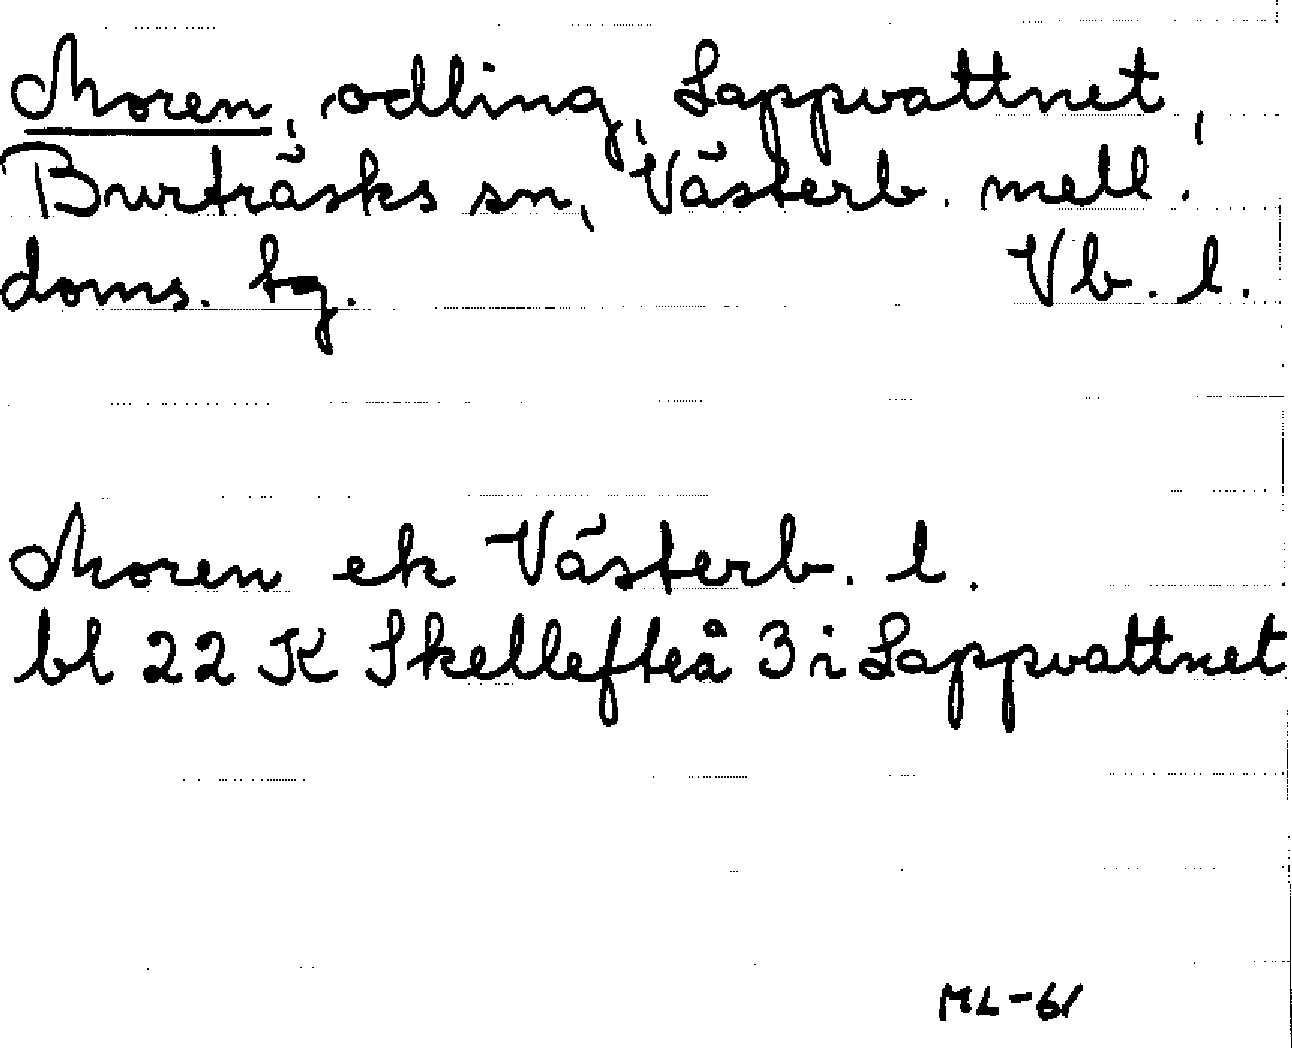 Moren, odling, Lappvattnet,
Burträsks sn, Västerb. mell.
doms. bg. Vb. l.
Moren ek Västerb. l.
bl 22 K Skellefteå 3 i Lappvattnet
ML-61